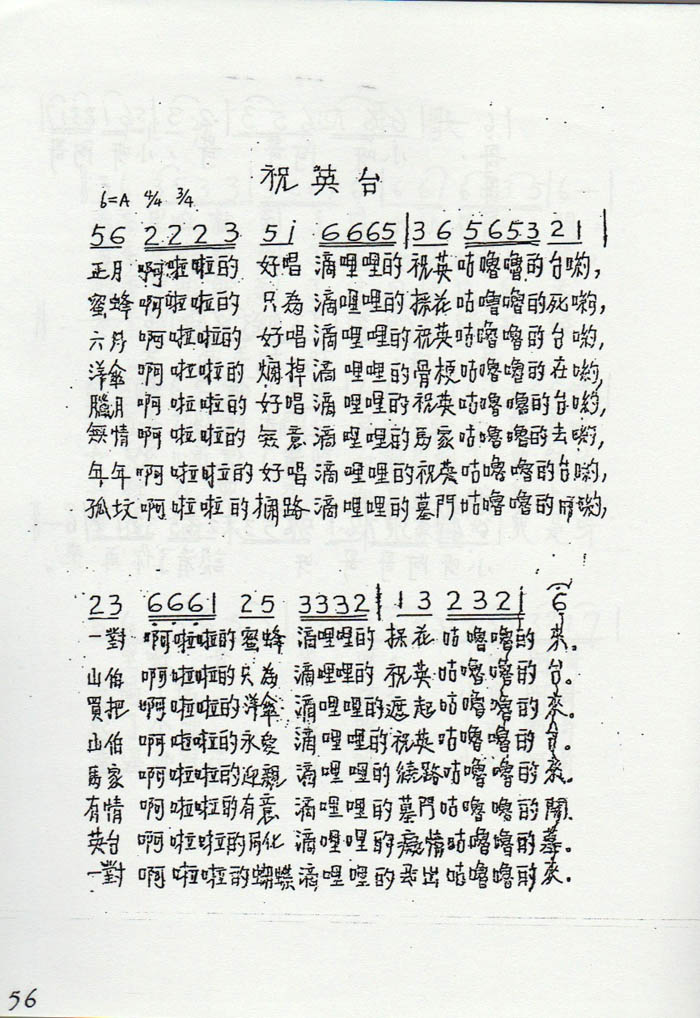 祝英台
6=A 4/4 3/4
56 2223 5i 6665 | 36 5653 21 |
正月 啊啦啦的 好唱 滴哩哩的 祝英咕嚕嚕的台喲,
蜜蜂 啊啦啦的 只為 滴哩哩的 採花咕嚕嚕的死喲,
六月 啊啦啦的 好唱 滴哩哩的 祝英咕嚕嚕的台喲,
洋傘 啊啦啦的 爛掉 滴哩哩的 骨梗咕嚕嚕的在喲,
臘月 啊啦啦的 好唱 滴哩哩的 祝英咕嚕嚕的台喲,
無情 啊啦啦的 無意 滴哩哩的 馬家咕嚕嚕的去喲,
年年 啊啦啦的 好唱 滴哩哩的 祝英咕嚕嚕的台喲,
孤坟 啊啦啦的 攔路 滴哩哩的 墓門咕嚕嚕的 喲,
23 6661 25 3332 | 13 2321 6
一對 啊啦啦的 蜜蜂 滴哩哩的 採花 咕嚕嚕的 來。
山伯 啊啦啦的 只為 滴哩哩的 祝英 咕嚕嚕的 台。
買把 啊啦啦的 洋傘 滴哩哩的 遮起 咕嚕嚕的 來。
山伯 啊啦啦的 永愛 滴哩哩的 祝英 咕嚕嚕的 台。
馬家 啊啦啦的 迎親 滴哩哩的 繞路 咕嚕嚕的 來。
有情 啊啦啦的 有意 滴哩哩的 墓門 咕嚕嚕的 開。
英台 啊啦啦的 化 滴哩哩的 癡情 咕嚕嚕的 墓。
一對 啊啦啦的 蝴蝶 滴哩哩的 飛出 咕嚕嚕的 來。
56